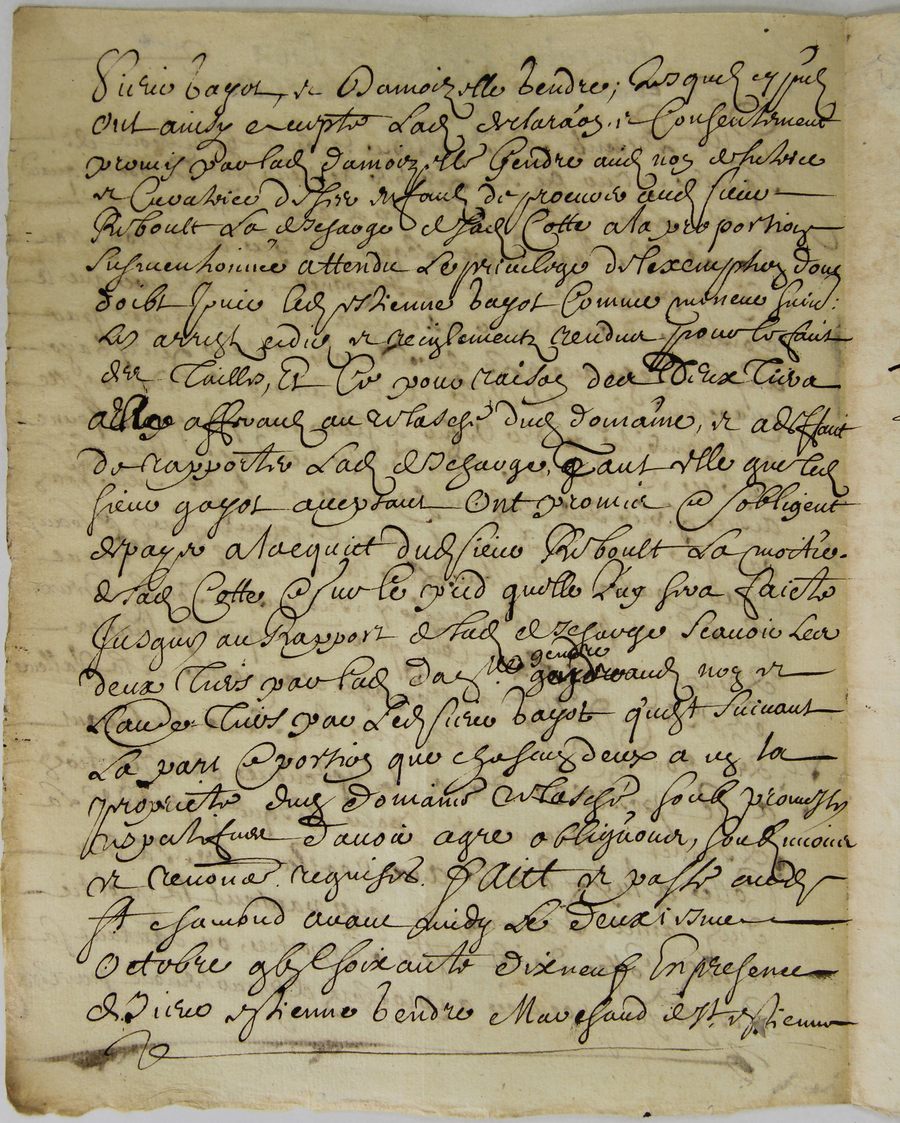 Sieur bayot, et Damoizelle bendre; lesquels
Ont ainsy accepté Lad declaraon et Consentement
promis par lad damoizelle Gendre aud nom de tutrice
et Curatrice de ses enfans de procurer aud sieur
Riboult La descharge de lad Cotte a la proportion
susmentionnée attendu Le privilege de lexemption dont
doibt Jouir led estienne bayot Comme mineur suiv:
les arrest edits et reiglements rendus pour le fait
des Tailles, Et Ce pour raison des Deux Tiers
a elle afferant au relasché dud domaine, et a deffaut
De rapporter Lad descharge, Tant elle que led
sieur gayot acceptant Ont promis et sobligent
de payer a lacquict dud sieur Riboult La moitié
de lad Cotte et sur le pied quelle luy sera faicte
Jusques au Rapport de lad descharge Scauoir Les
deux Tiers par lad dalle gendre aud nom et
Laude Tiers par Led sieur bayot quest suiuant
La part et portion que chascun deux a en la
proprieté dud domaine relasché soub promesses
respectiues dauoir agre obligaons, soubmions
et renonaons requises. fAict et passé aud
St chamond auant midy Le deuxiesme
Octobre gbjc soixante dixneuf En presence
de Sieur estienne bendre Marchand de St estienne